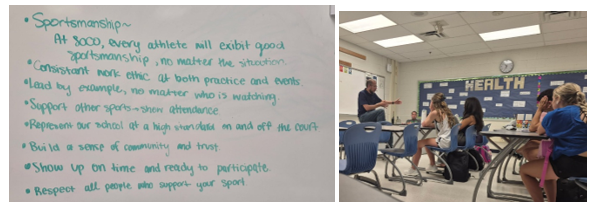 • Sportsmanship~
At SOCO, every athlete will exibit good
sportsmanship, no matter the situation.
• Consistant work ethic at both practice and events
• Lead by example, no matter who is watching
• Support other sports → show attendance
• Represent our school at a high standard on and off the court
• Build a sense of community and trust
• Show up on time and ready to participate
• Respect all people who support your sport
HEALTH